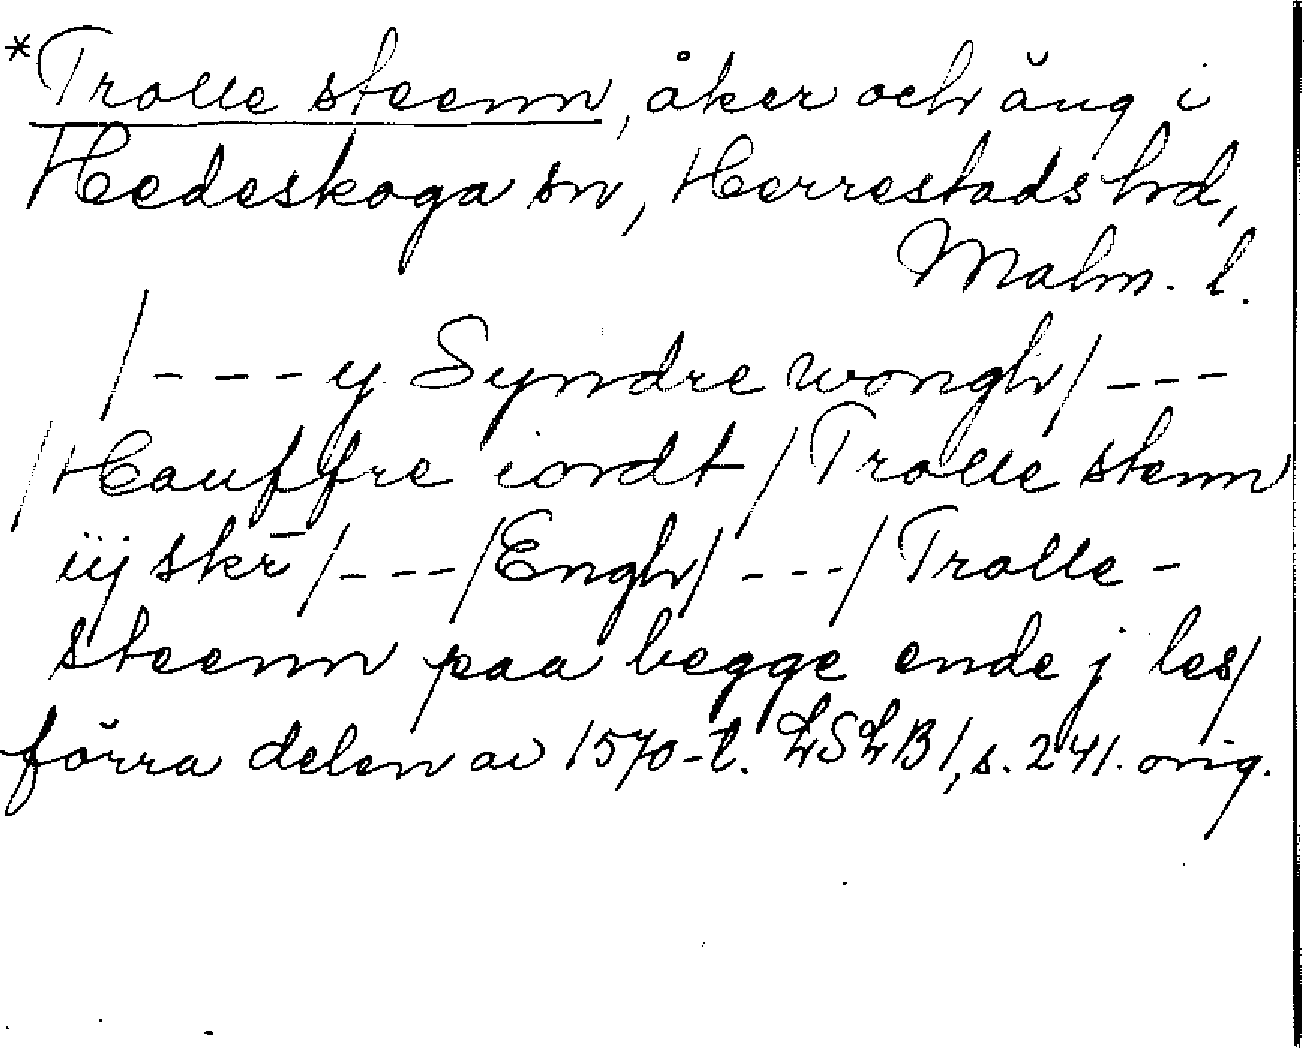 *Trolle steenn, åker och äng i
Hedeskoga sn, Herrestads hd,
Malm. l.
/---y Syndre wongh/---
/Hauffre iordt/Trolle stenn
iij skr̄/---/Engh/---/Trolle-
steenn paa begge ende j les/
förra delen av 1570-t. LSLB1, s. 241. orig.